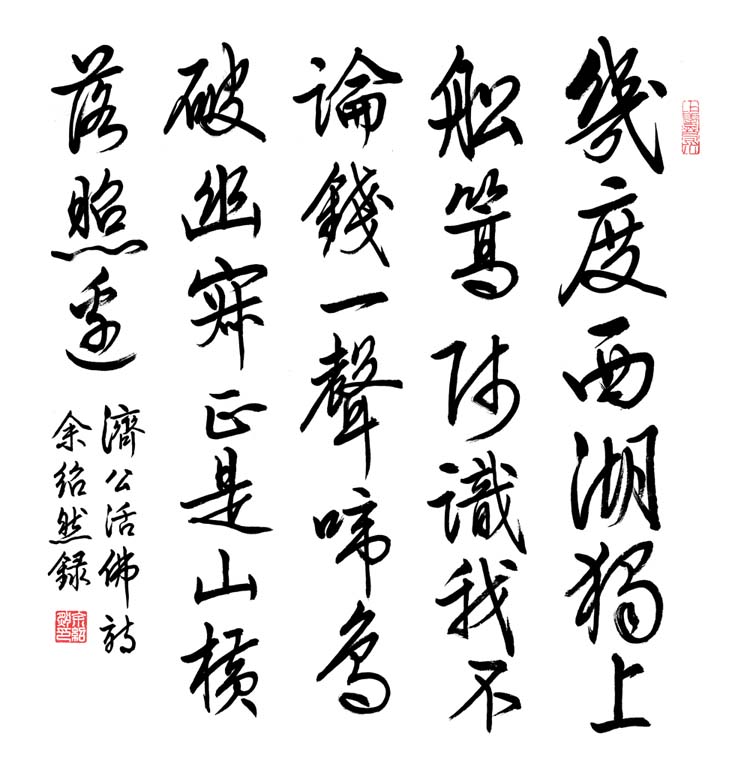 幾度西湖獨上
船篙師識我不
論錢一聲啼鳥
破幽寂正是山橫
落照邊
濟公活佛詩
余紹然錄